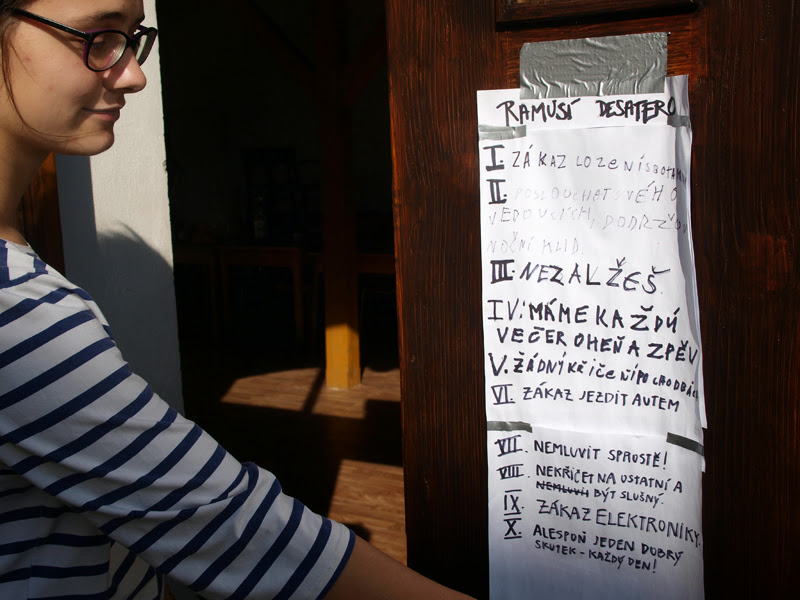 RAMUSÍ DESATERO
I. ZÁKAZ LOZENÍ S BOTAMA
II. POSLOUCHET SVÉHO
VEDOUCÍCH, DODRŽOV
NOČNÍ KLID.
III. NEZALŽEŠ.
IV. MÁME KAŽDÚ
VEČER OHEŇ A ZPĚV
V. ŽÁDNÝ KŘIČENÍ PO CHODBÁCH
VI. ZÁKAZ JEZDIT AUTEM
VII. NEMLUVIT SPROSTĚ!
VIII. NEKŘIČET NA OSTATNÍ A
BÝT SLUŠNÝ.
IX. ZÁKAZ ELEKTRONIKY.
X. ALESPOŇ JEDEN DOBRÝ
SKUTEK - KAŽDÝ DEN!